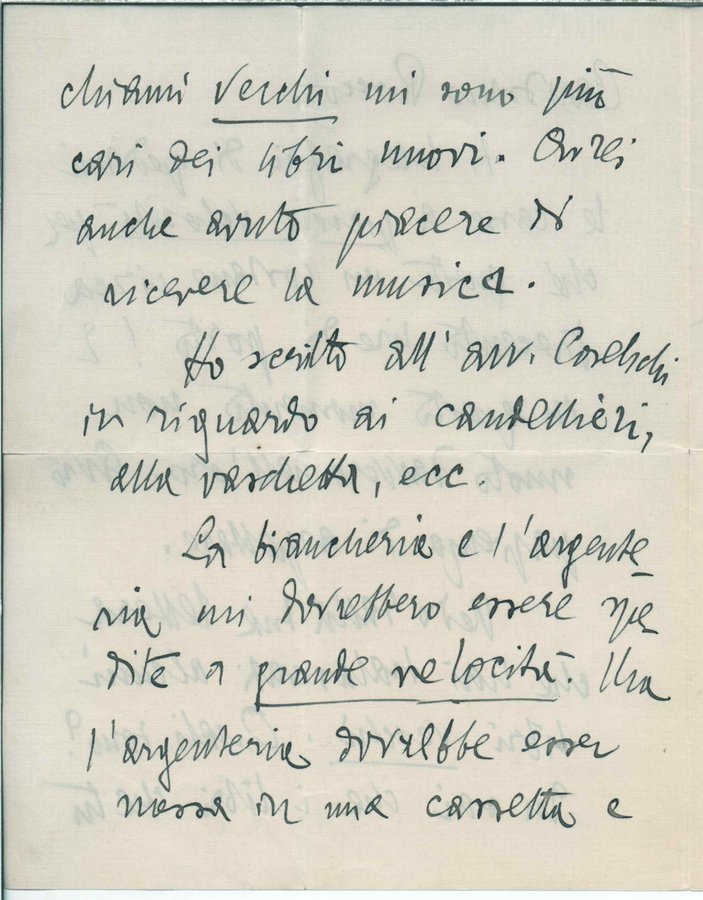 chiami vecchi mi sono più
cari dei libri nuovi. Avrei
anche avuto piacere di
ricevere la musica.
Ho scritto all'avv. Coselschi
in riguardo ai candellieri,
alla vaschetta, ecc.
La biancheria e l'argente
ria mi dovrebbero essere spe
dite a grande velocità. Ma
l'argenteria dovrebbe esser
messa in una cassetta e